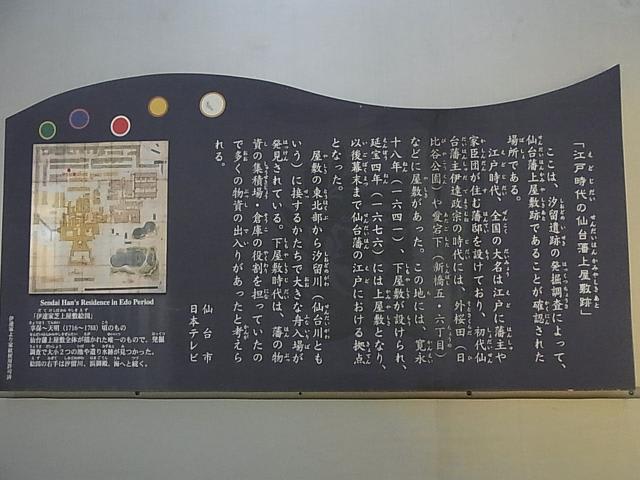 「江戸時代の仙台藩上屋敷跡」
ここは、汐留遺跡の発掘調査によって、
仙台藩上屋敷跡であることが確認された
場所である。
江戸時代、全国の大名は江戸に藩主や
家臣団が住む藩邸を設けており、初代仙
台藩主伊達政宗の時代には、外桜田（日
比谷公園）や愛宕下（新橋五・六丁目）
などに屋敷があった。この地には、寛永
十八年（一六四一）、下屋敷が設けられ、
延宝四年（一六七六）には上屋敷となり、
以後幕末まで仙台藩の江戸における拠点
となった。
屋敷の東北部から汐留川（仙台川とも
いう）に接するかたちで大きな舟入場が
発見されている。下屋敷時代は、藩の物
資の集積場、倉庫の役割を担っていたの
で多くの物資の出入りがあったと考えら
れる。
仙台市
日本テレビ
Sendai Han's Residence in Edo Period
「伊達家芝上屋敷絵図」
享保～天明（1716～1788）頃のもの
仙台藩上屋敷全体が描かれた唯一のもので、発掘
調査で大小2つの池や遣り水跡が見つかった。
絵図の右手は汐留川、浜御殿、海へと続く。